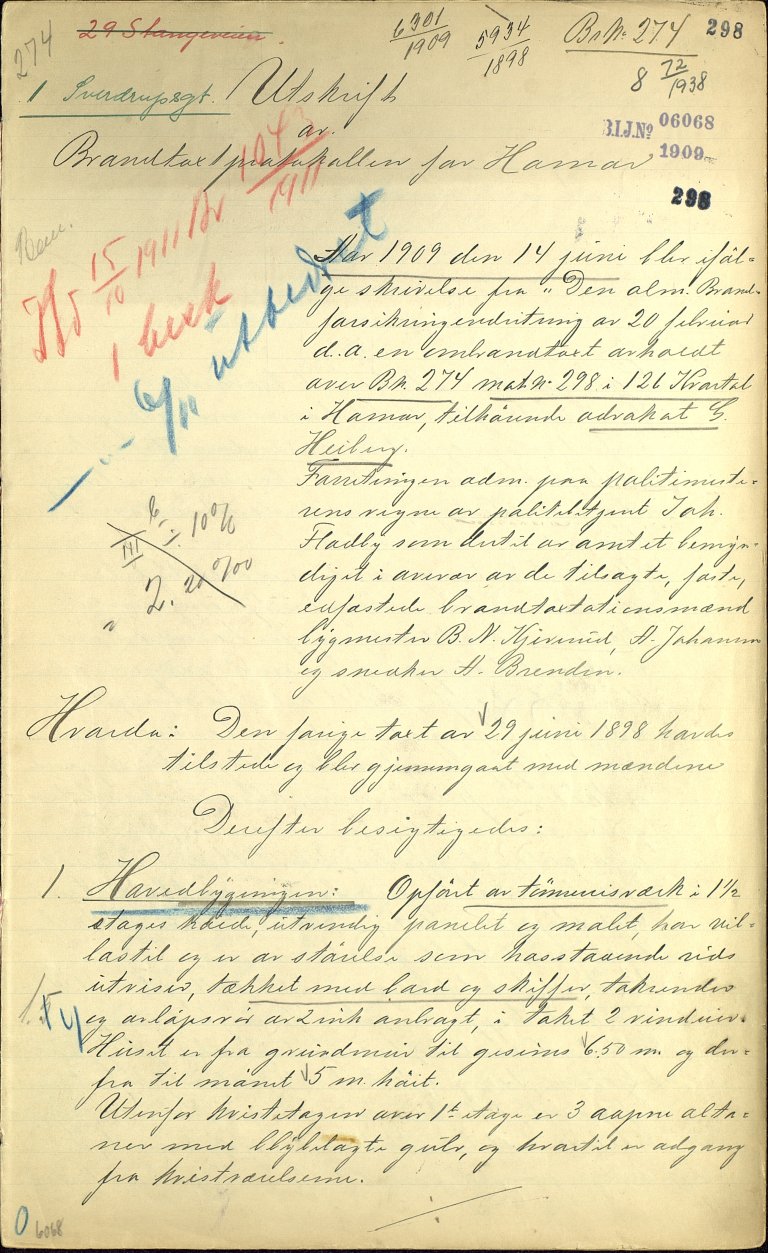 274
29 Stangeveien.
6301/1909
5934/1898
Br.Nr. 274
298
8 12/1938
1 Sverdrupsgt.
Utskrift
av
B.I.J.No 06068
1909
Brandtaxtprotokollen for Hamar
298
1043/1911
15/10 1911 Br
1 besk
6/11 utbedret
Aar 1909 den 14 juni blev iføl=
ge skrivelse fra "Den alm. Brand=
forsikringsindretning av 20 februar
d. a. en ombrandtaxt avholdt
over Br. 274 mat.No 298 i 126 Kvartal
i Hamar, tilhørende advokat G.
Heiberg.
Forretningen adm. paa politimeste=
rens vegne av politibetjent Joh.
Fladby som dertil av amtet bemyn=
diget i overvær av de tilsagte, faste,
edfæstede brandtaxtationsmænd
bygmester B. N. Kjernud, A. Johansen
og snedker A. Brenden.
6 ÷ 10%
III
2. 20 %oo
Hvorda: Den forrige taxt av 29 juni 1898 havdes
tilstede og blev gjennemgaat med mændene
Derefter besigtigedes:
1. Hovedbygningen: Opført av tømmerverk i 1 1/2
etages høide, utvendig panelet og malet, har vil=
lastil og er av størelse som hosstaaende rids
utviser, tækket med bord og skiffer, takrender
og avløpsrør av zink anbragt, i taket 2 vinduer.
Huset er fra grundmur til gesims 6.50 m. og der=
fra til mønet 5 m. høit.
Utenfor kvistetagen over 1ste etage er 3 aapne alta=
ner med blybelagte gulv, og hvortil er adgang
fra kvistværelserne.
0 6068